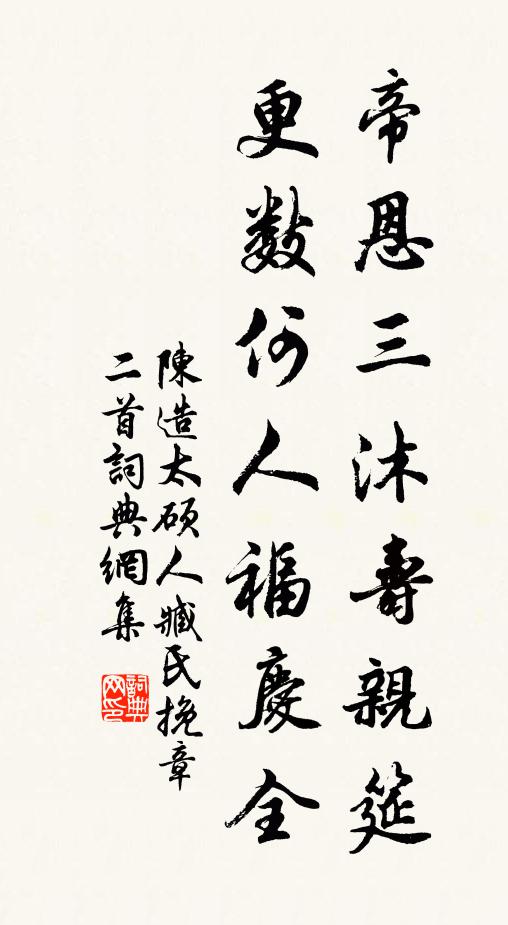 帝恩三沐壽親筵
更數何人福慶全
陳造太碩人臧氏挽章
二首詞典網集
詞典
网印